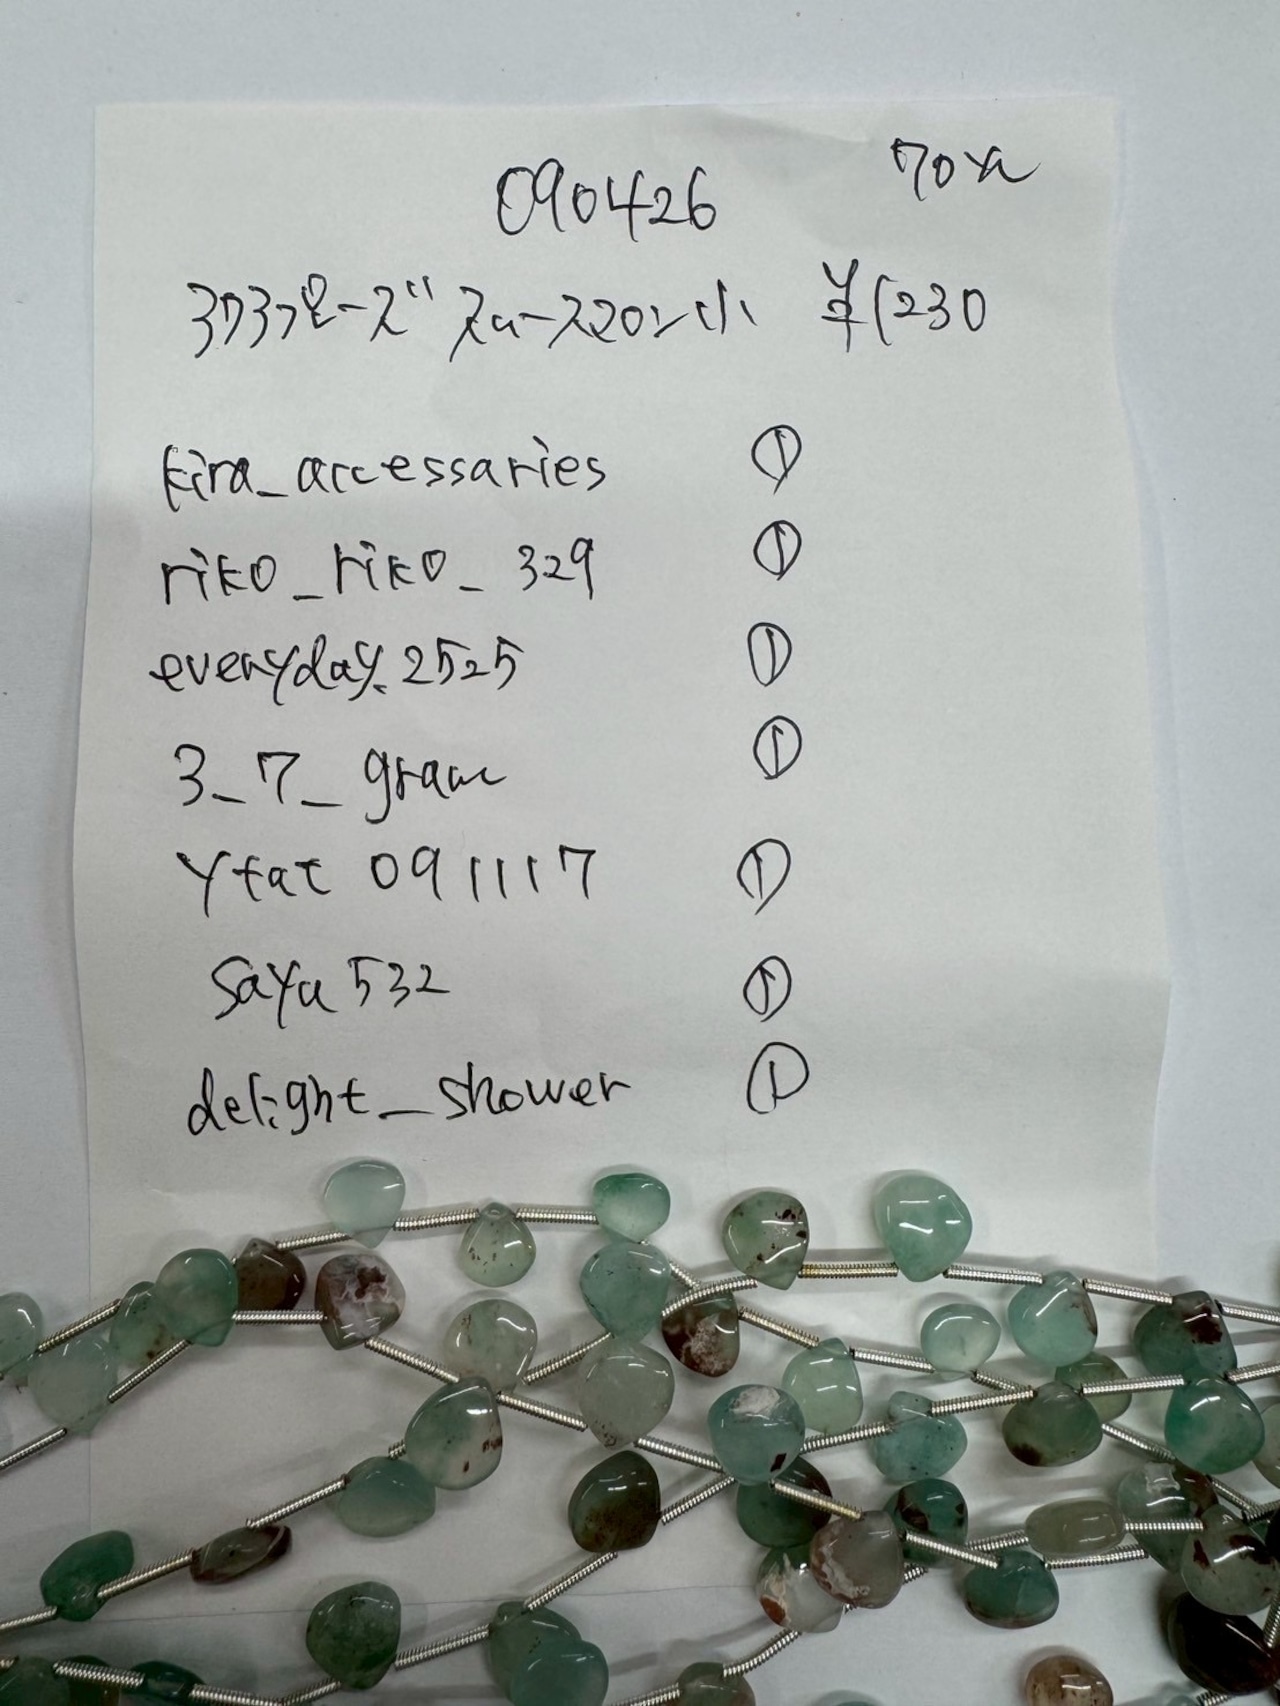 090426
¥1230
kira_accessaries ①
riko_riko_329 ①
everyday.2525 ①
3_7_gram ①
ytat 091117 ①
saya532 ①
delight_shower ①